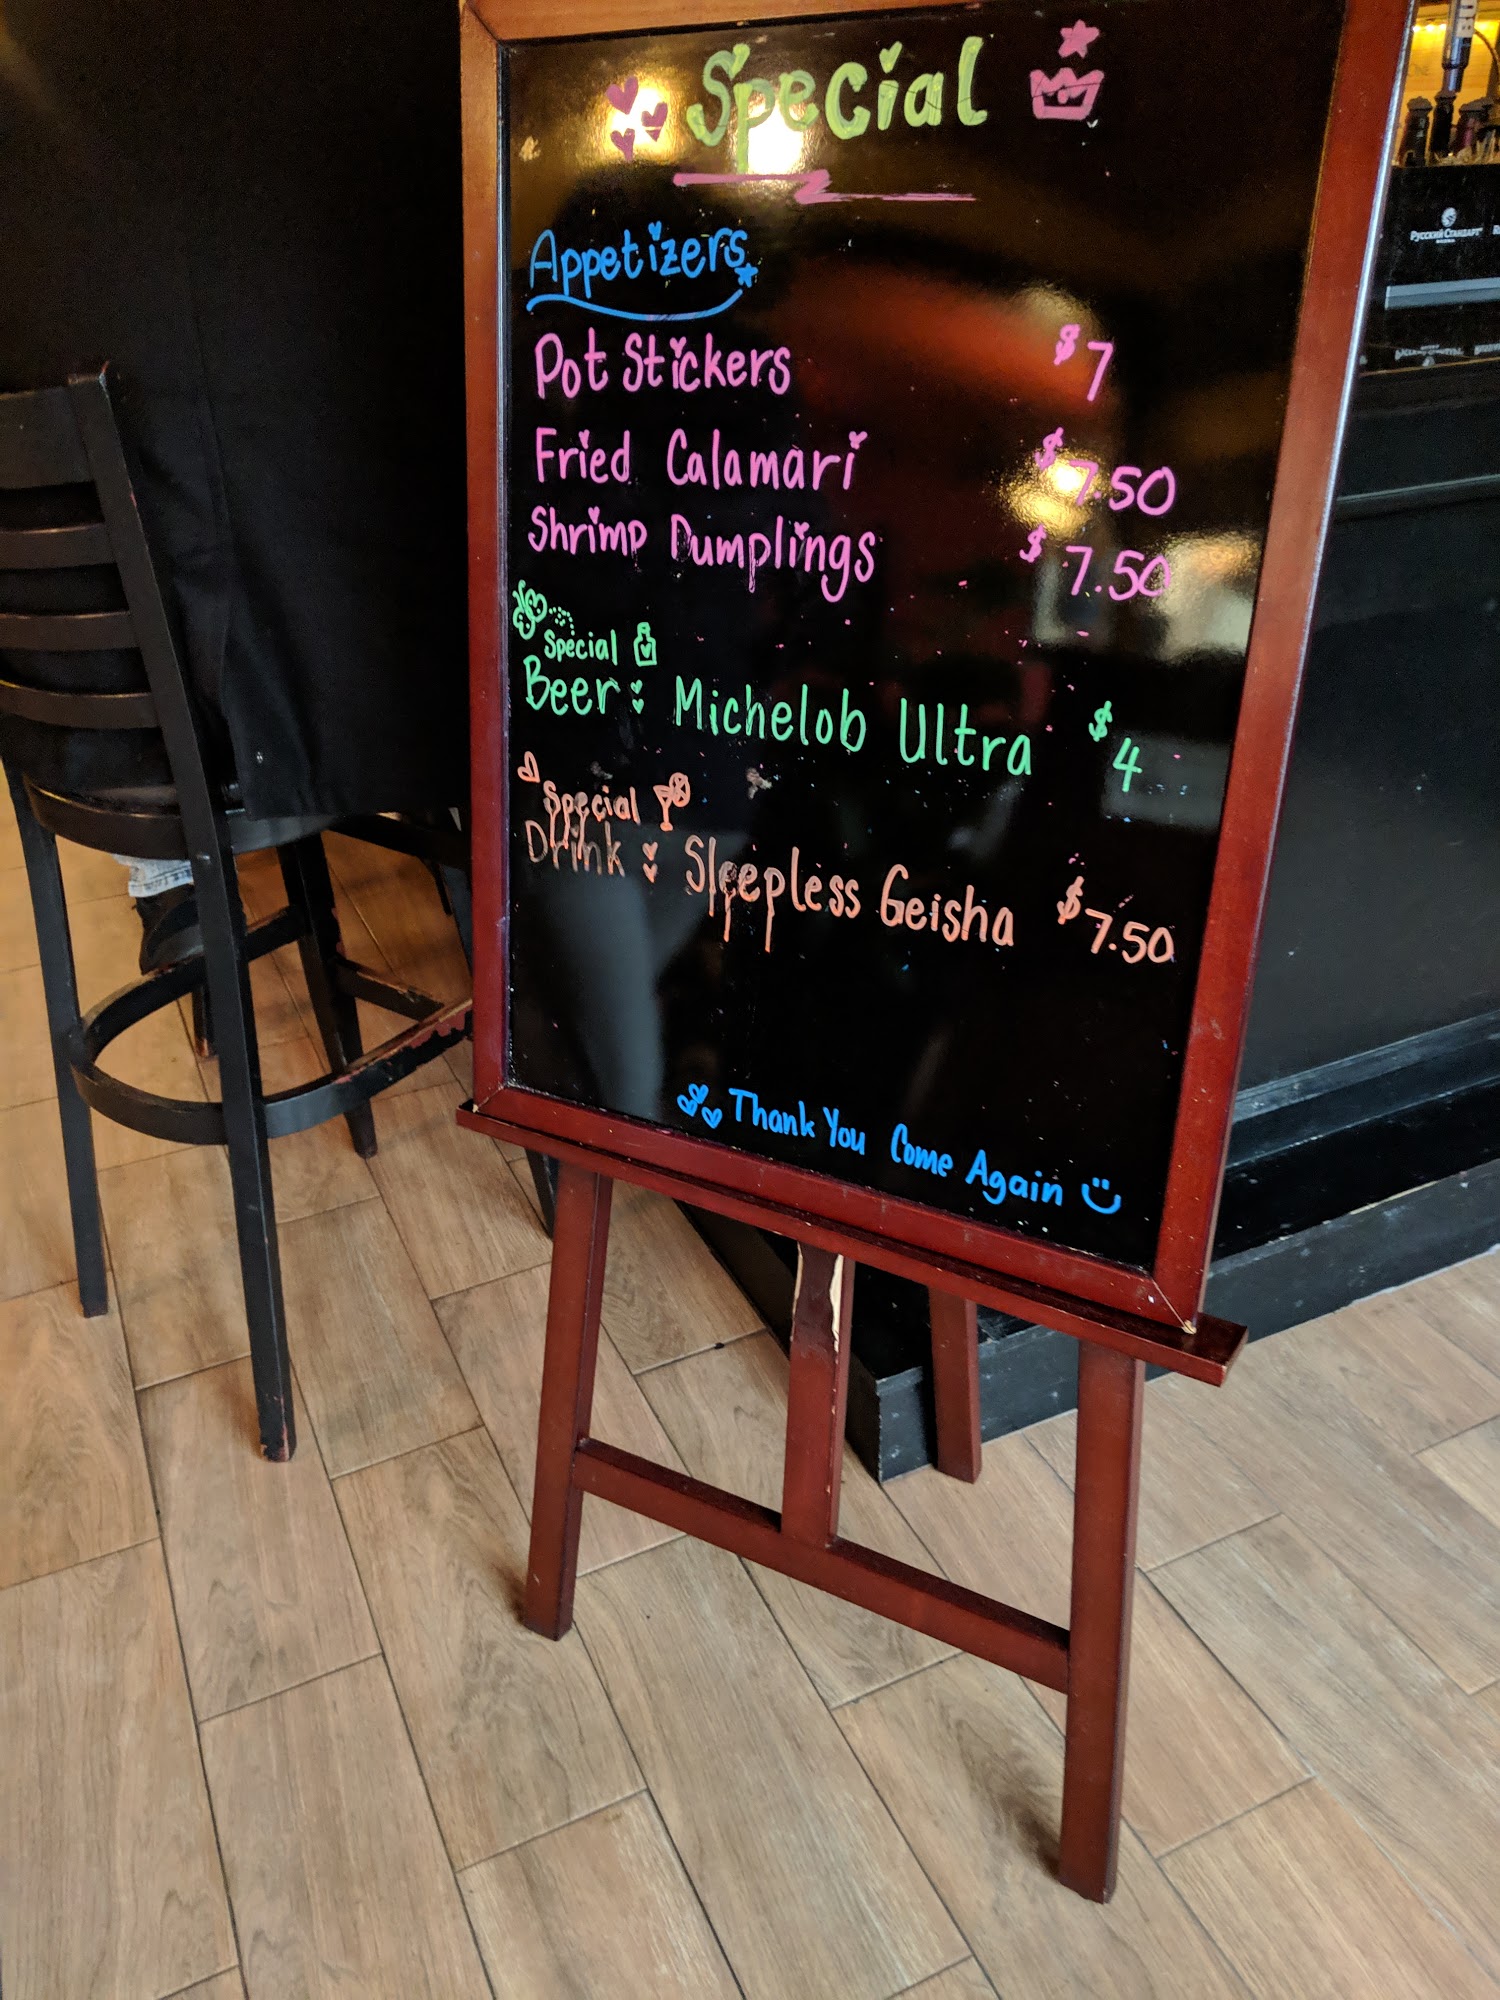 Special
Appetizers
Pot Stickers $7
Fried Calamari $7.50
Shrimp Dumplings $7.50
Special
Beer: Michelob Ultra $4
Special
Drink: Sleepless Geisha $7.50
Thank You Come Again
Русский Стандарт